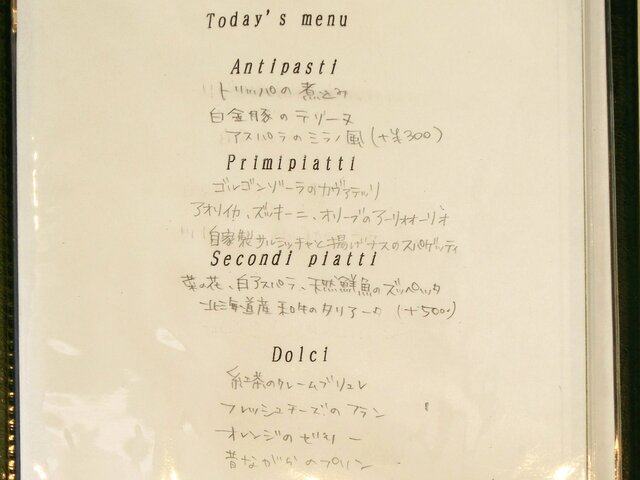 Today's menu
Antipasti
トリッパの煮込み
白金豚のテリーヌ
アスパラのミラノ風 (+¥300)
Primipiatti
ゴルゴンゾーラのカヴァテッリ
アオリイカ、ズッキーニ、オリーブのアーリオオーリオ
自家製サルシッチャと揚げナスのスパゲッティ
Secondi piatti
菜の花、白アスパラ、天然鮮魚のズッペッタ
北海道産和牛のタリアータ (+500)
Dolci
紅茶のクレームブリュレ
フレッシュチーズのフラン
オレンジのゼリー
昔ながらのプリン